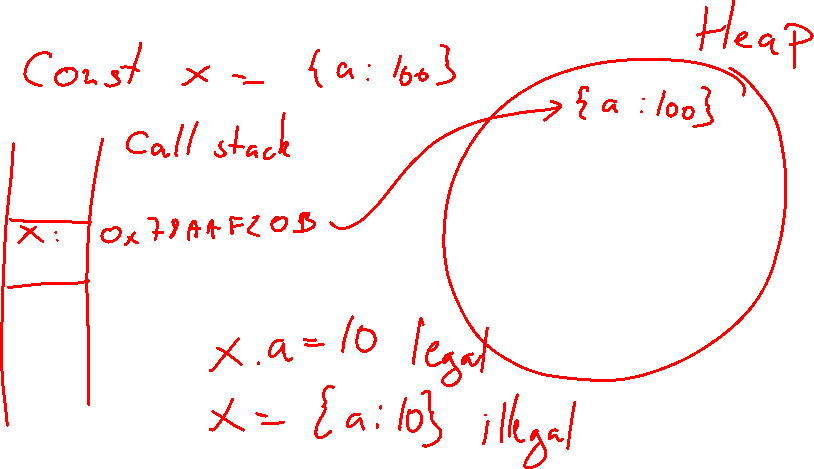 Heap
Const x = {a: 100}
{a : 100}
Call stack
x: 0x79AAF20B
x.a = 10 legal
x = {a:10} illegal